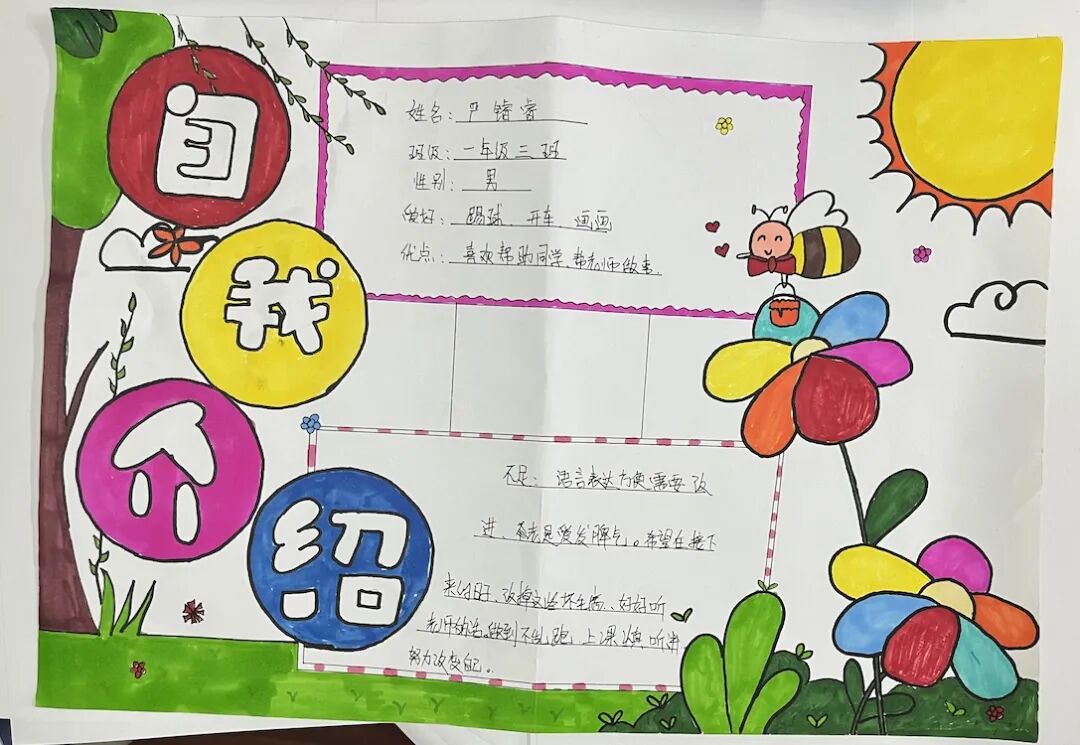 自我介绍
姓名：严锴睿
班级：一年级三班
性别：男
爱好：踢球、开车 画画
优点：喜欢帮助同学、帮老师做事。
不足：语言表达方便需要改
进、有老是爱发脾气。希望在接下
来的日子、改掉这些坏毛病、好好听
老师的话。做到不乱跑、上课认真听讲
努力改变自己。